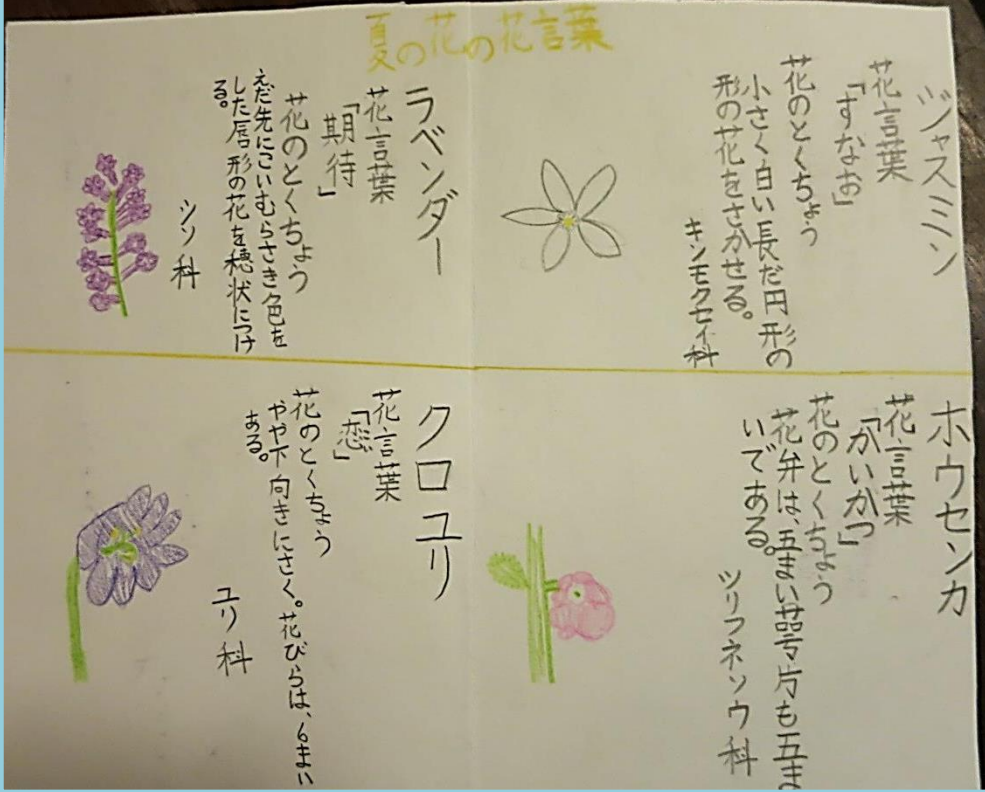 夏の花の花言葉
ジャスミン
花言葉
「すなお」
花のとくちょう
小さく白い長だ円形の
形の花をさかせる。
キンモクセイ科
ラベンダー
花言葉
「期待」
花のとくちょう
えだ先にこいむらさき色を
した唇形の花を穂状につけ
る。
シソ科
ホウセンカ
花言葉
「かいかつ」
花のとくちょう
花弁は、五まい萼片も五ま
いである。
ツリフネソウ科
クロユリ
花言葉
「恋」
花のとくちょう
やや下向きにさく。花びらは、6まい
ある。
ユリ科